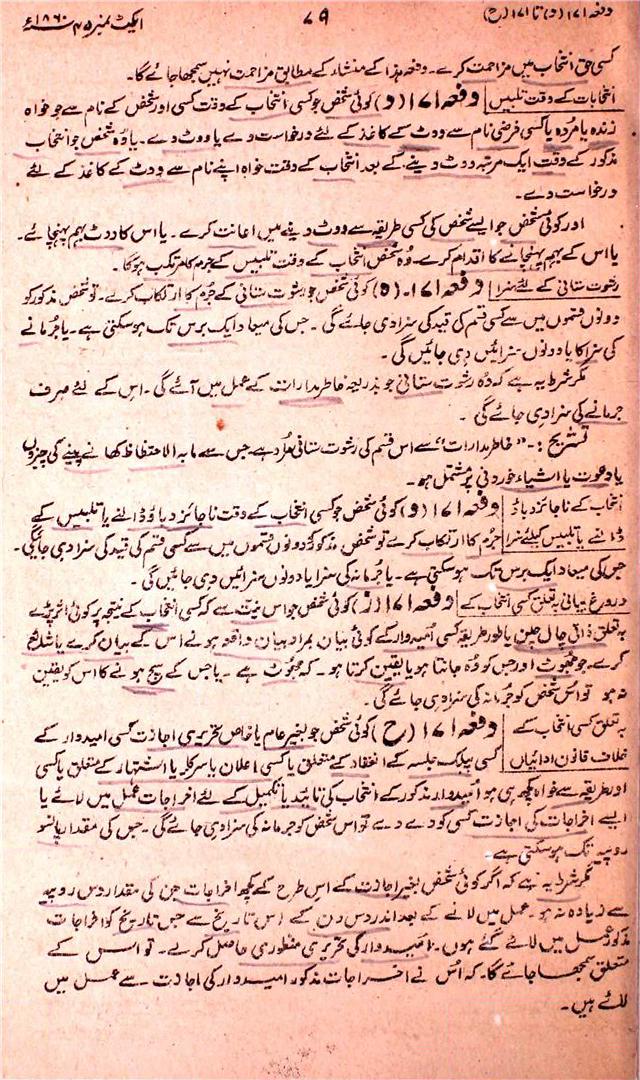 دفعہ ۱۷۱ (و) تا ۱۷۱ (ح)
۷۹
ایکٹ نمبر ۴۵ ۱۸۶۰ء
کسی حق انتخاب میں مزاحمت کرے۔ دفعہ ہذا کے منشاء کے مطابق مزاحمت نہیں سمجھا جائے گا۔
انتخابات کے وقت تلبیس دفعہ ۱۷۱ (و) کوئی شخص جو کسی انتخاب کے وقت کسی اور شخص کے نام سے جو خواہ
زندہ یا مردہ یا کسی فرضی نام سے ووٹ کے کاغذ کے لئے درخواست دے یا ووٹ دے۔ یا وہ شخص جو انتخاب
مذکور کے وقت ایک مرتبہ ووٹ دینے کے بعد انتخاب کے وقت خواہ اپنے نام سے ووٹ کے کاغذ کے لئے
درخواست دے۔
اور کوئی شخص جو ایسے شخص کی کسی طریقہ سے ووٹ دینے میں اعانت کرے۔ یا اس کا ووٹ بہم پہنچائے۔
یا اس کے بہم پہنچانے کا اقدام کرے۔ وہ شخص انتخاب کے وقت تلبیس کے جرم کا مرتکب ہوگا۔
رشوت ستانی کے لئے سزا دفعہ ۱۷۱۔ (ہ) کوئی شخص جو رشوت ستانی کے جرم کا ارتکاب کرے۔ تو شخص مذکور کو
دونوں قسموں میں سے کسی قسم کی قید کی سزا دی جائے گی۔ جس کی میعاد ایک برس تک ہو سکتی ہے۔ یا جرمانے
کی سزا کا یا دونوں سزائیں دی جائیں گی۔
مگر شرط یہ ہے کہ وہ رشوت ستانی جو بذریعہ خاطر مدارات کے عمل میں آئے گی۔ اس کے لئے صرف
جرمانے کی سزا دی جائے گی۔
تشریح :۔ "خاطر مدارات" سے اس قسم کی رشوت ستانی مراد ہے جس سے مابہ الاحتظاظ کھانے پینے کی چیزوں
یا دعوت یا اشیاء خوردنی پر مشتمل ہو۔
انتخاب کے ناجائز دباؤ دفعہ ۱۷۱ (و) کوئی شخص جو کسی انتخاب کے وقت ناجائز دباؤ ڈالنے یا تلبیس کے
ڈالنے یا تلبیس کیلئے سزا جرم کا ارتکاب کرے تو شخص مذکور کو دونوں قسموں میں سے کسی قسم کی قید کی سزا دی جائیگی۔
جس کی میعاد ایک برس تک ہو سکتی ہے۔ یا جرمانہ کی سزا یا دونوں سزائیں دی جائیں گی۔
دروغ بیانی بہ تعلق کسی انتخاب کے دفعہ ۱۷۱ (ز) کوئی شخص جو اس نیت سے کہ کسی انتخاب کے نتیجہ پر کوئی اثر پڑے
بہ تعلق ذاتی چال چلن یا طور طریقہ کسی امیدوار کے کوئی بیان بمراد بیان واقعہ ہونے اس کے بیان کرے یا شائع
کرے۔ جو جھوٹ اور جس کو وہ جانتا ہو یا یقین کرتا ہو۔ کہ جھوٹ ہے۔ یا جس کے سچ ہونے کا اس کو یقین
نہ ہو تو اس شخص کو جرمانہ کی سزا دی جائے گی۔
بہ تعلق کسی انتخاب کے دفعہ ۱۷۱ (ح) کوئی شخص جو بغیر عام یا خاص تحریری اجازت کسی امیدوار کے
خلاف قانون ادائیاں کسی پبلک جلسہ کے انعقاد کے متعلق یا کسی اعلان یا سرکلر یا اشتہار کے متعلق یا کسی
اور طریقہ سے خواہ کچھ ہی ہو امیدوار مذکور کے انتخاب کی تائید یا تکمیل کے لئے اخراجات عمل میں لائے یا
ایسے اخراجات کی اجازت کسی کو دے دے تو اس شخص کو جرمانہ کی سزا دی جائے گی۔ جس کی مقدار پانسو
روپیہ تک ہو سکتی ہے۔
مگر شرط یہ ہے کہ اگر کوئی شخص بغیر اجازت کے اس طرح کے کچھ اخراجات جن کی مقدار دس روپیہ
سے زیادہ نہ ہو۔ عمل میں لانے کے بعد اندر دس دن کے اس تاریخ سے جس تاریخ کو اخراجات
مذکور عمل میں لائے گئے ہوں۔ امیدوار کی تحریری منظوری حاصل کرے۔ تو اس کے
متعلق سمجھا جائے گا۔ کہ اس نے اخراجات مذکور امیدوار کی اجازت سے عمل میں
لائے ہیں۔